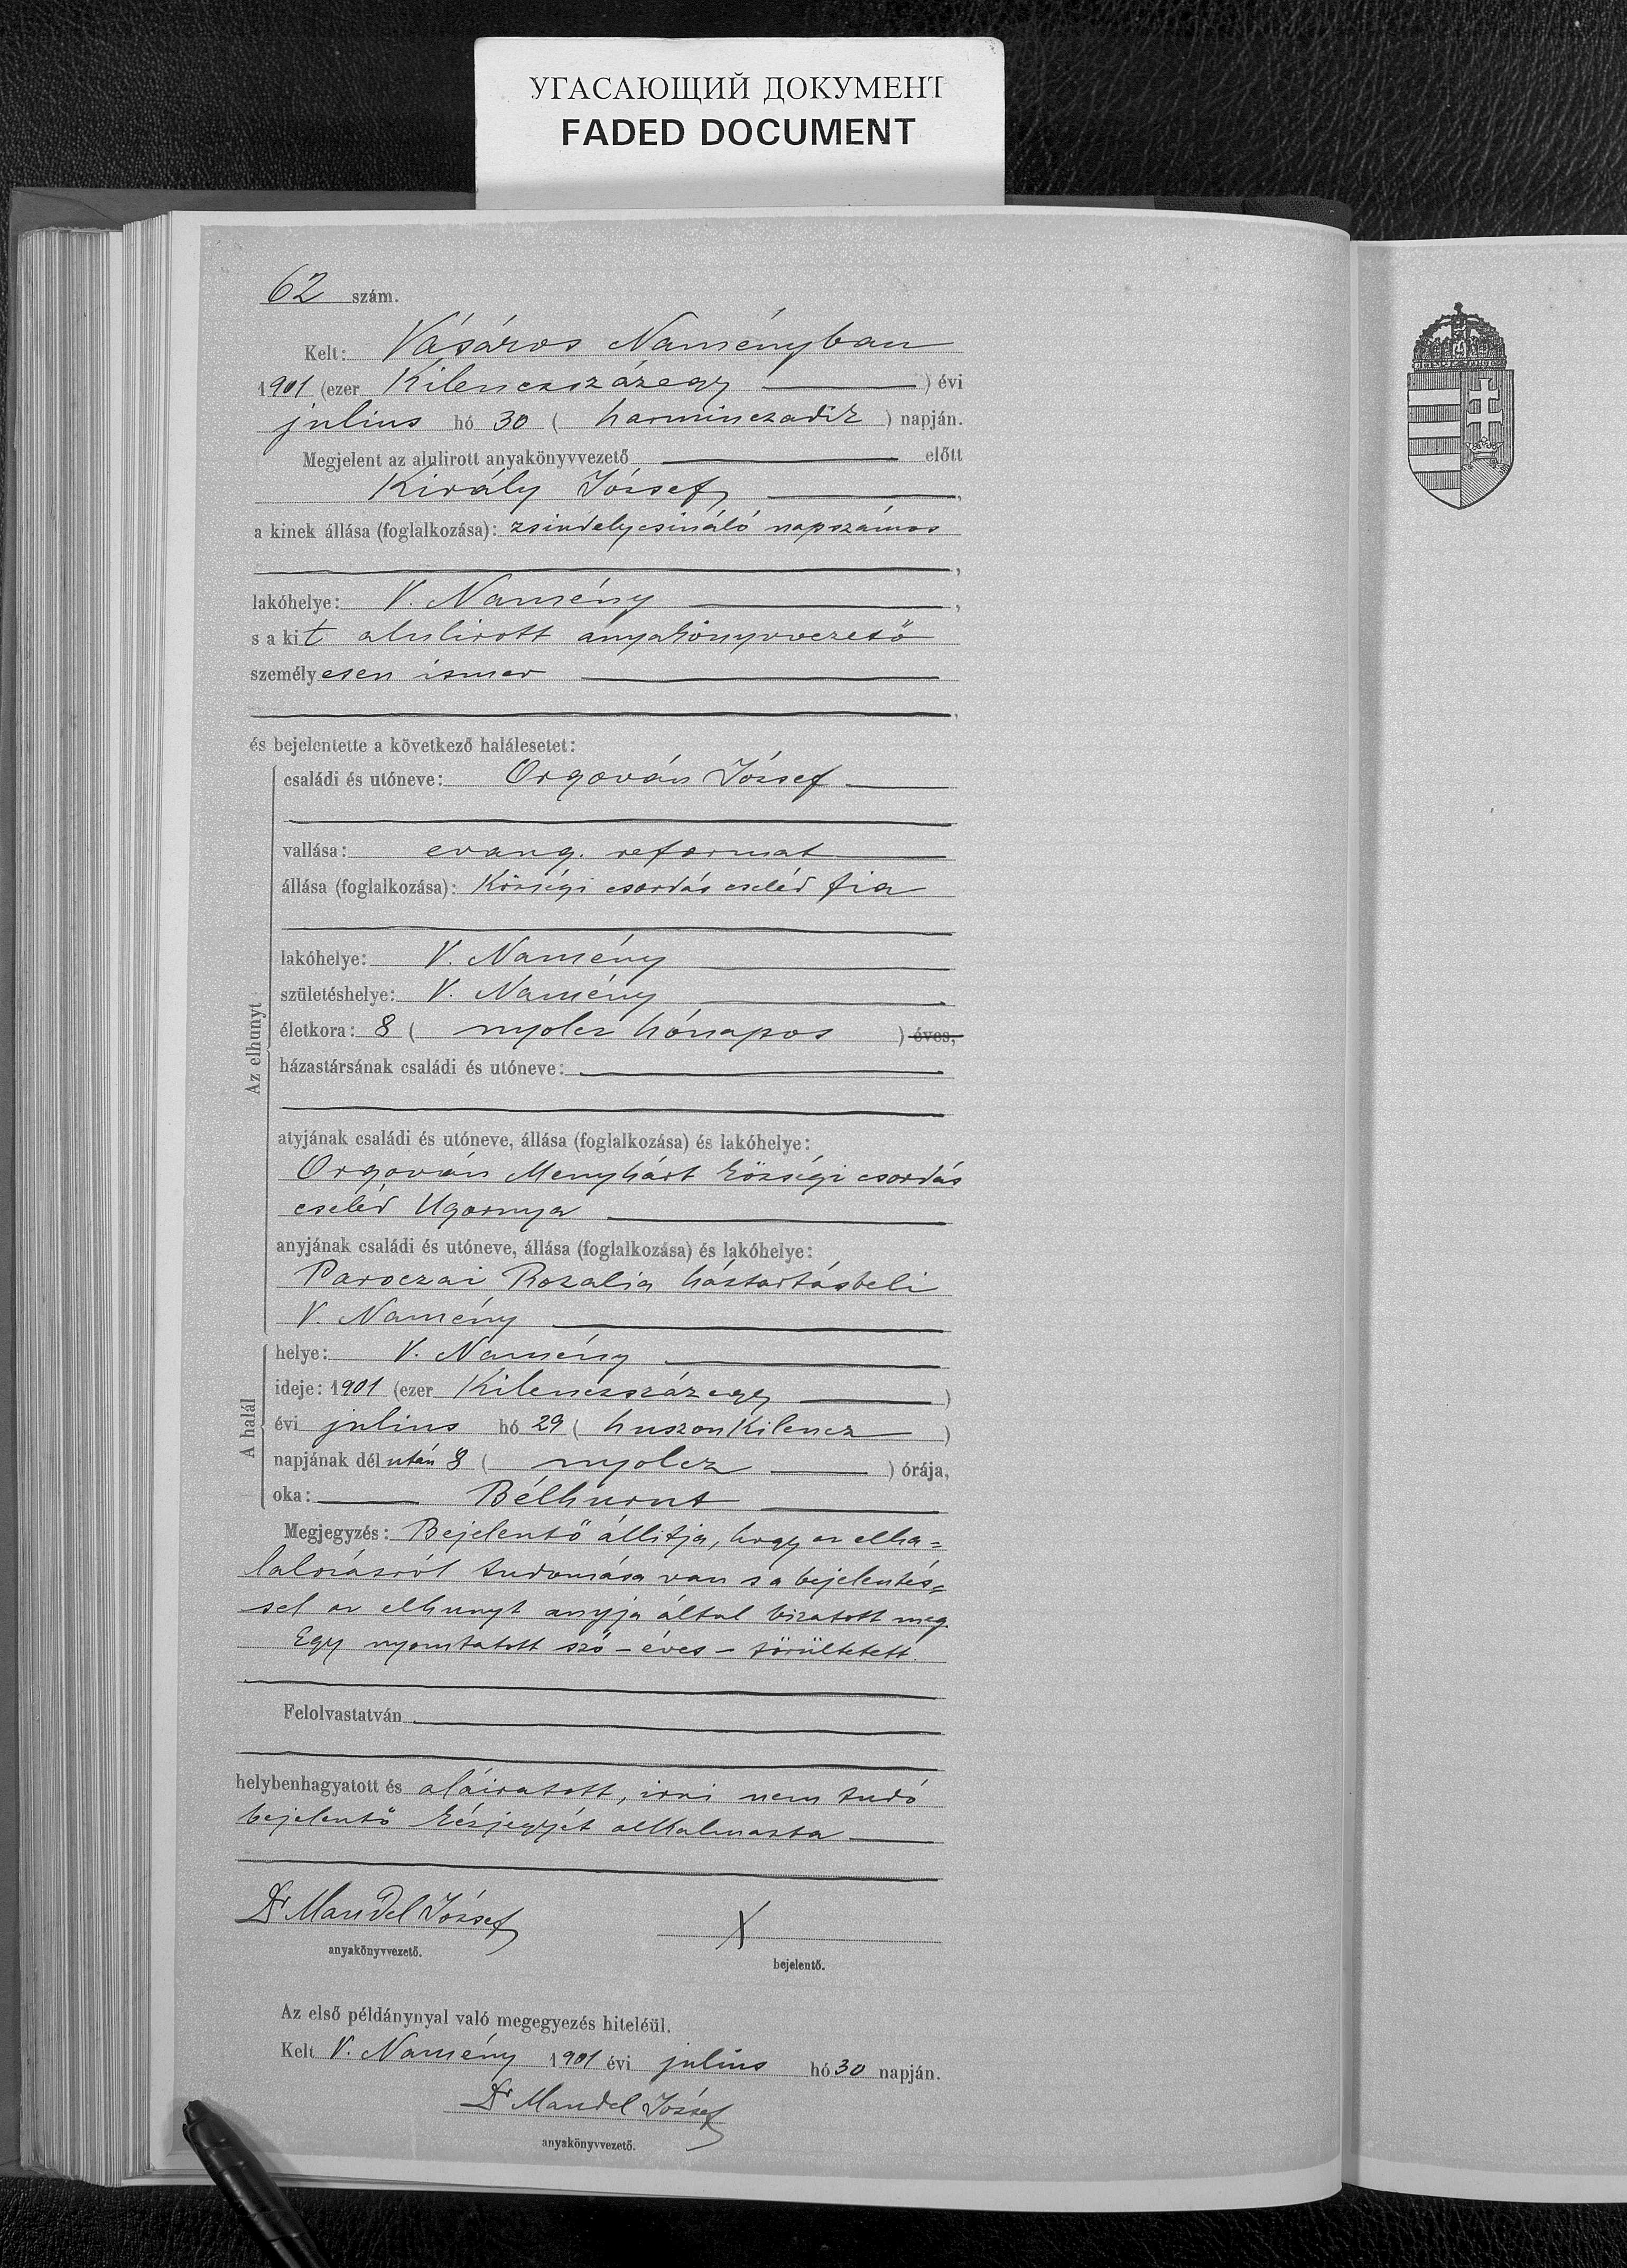 УГАСАЮЩИЙ ДОКУМЕНТ
FADED DOCUMENT
62 szám.
Kelt: Vásáros Naményban
1901 (ezer Kilenczszázegy ) évi
julius hó 30 ( harminczadik ) napján.
Megjelent az alulirott anyakönyvvezető előtt
Király József,
a kinek állása (foglalkozása): zsindelycsináló napszámos
,
lakóhelye: V. Namény ,
s a kit alulirott anyakönyvvezető
személyesen ismer
,
és bejelentette a következő halálesetet:
Az elhunyt
családi és utóneve: Orgován József
vallása: evang. reformat
állása (foglalkozása): Községi csordás cseléd fia
lakóhelye: V. Namény
születéshelye: V. Namény
életkora: 8 ( nyolcz hónapos ) éves,
házastársának családi és utóneve:
atyjának családi és utóneve, állása (foglalkozása) és lakóhelye:
Orgován Menyhárt községi csordás
cseléd Ugornya
anyjának családi és utóneve, állása (foglalkozása) és lakóhelye:
Paroczai Rozalia háztartásbeli
V. Namény
A halál
helye: V. Namény
ideje: 1901 (ezer Kilenczszázegy )
évi julius hó 29 ( huszonkilencz )
napjának délután 8 ( nyolcz ) órája,
oka: Bélhurut
Megjegyzés: Bejelentő állitja, hogy az elha=
lálozásról tudomása van s a bejelentés=
sel az elhunyt anyja által bizatott meg.
Egy nyomtatott szó – éves – törültetett.
Felolvastatván
helybenhagyatott és aláiratott, irni nem tudó
bejelentő kézjegyét alkalmazta
Dr Mandel József
anyakönyvvezető.
X
bejelentő.
Az első példánynyal való megegyezés hiteléül.
Kelt V. Namény 1901 évi julius hó 30 napján.
Dr Mandel József
anyakönyvvezető.